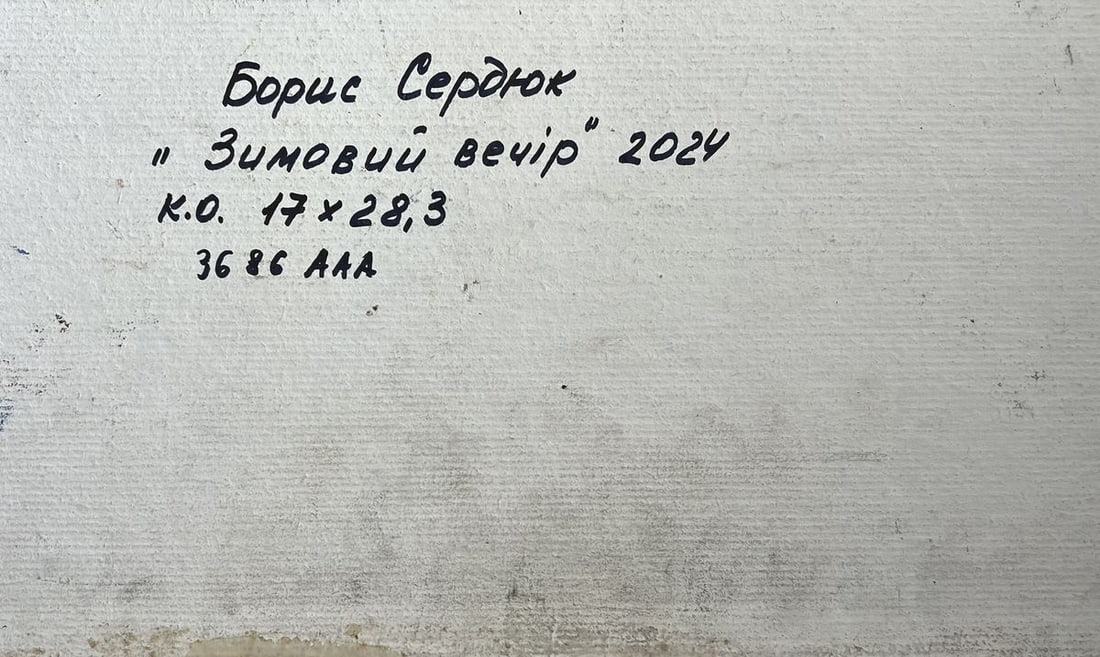 Борис Сердюк
" Зимовий вечір" 2024
к.о. 17 x 28,3
3686 AAA